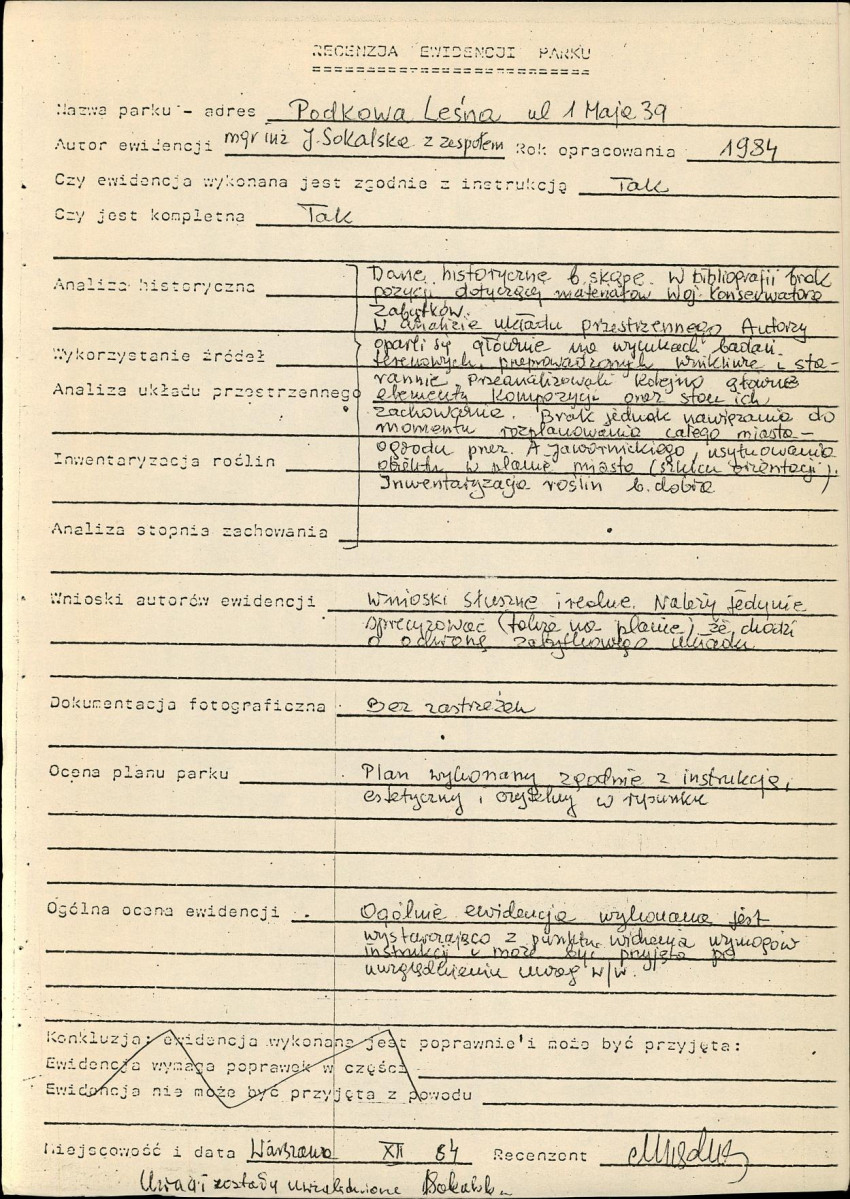 RECENZJA EWIDENCJI PARKU
Nazwa parku - adres Podkowa Leśna ul 1 Maja 39
Autor ewidencji mgr inż J. Sokalska z zespołem Rok opracowania 1984
Czy ewidencja wykonana jest zgodnie z instrukcją Tak
Czy jest kompletna Tak
Analiza historyczna
Wykorzystanie źródeł
Analiza układu przestrzennego
Inwentaryzacja roślin
Analiza stopnia zachowania
Dane historyczne b. skąpe. W bibliografii brak
pozycji dotyczącej materiałów Woj. Konserwatora
Zabytków.
W analizie układu przestrzennego Autorzy
oparli się głównie na wynikach badań
terenowych, przeprowadzonych wnikliwie i sta-
rannie przeanalizowali kolejno główne
elementy kompozycji oraz stan ich
zachowania. Brak jednak nawiązania do
momentu rozplanowania całego miasta-
ogrodu przez A Jawornickiego, usytuowania
obiektu w planie miasta (szkicu orientacji).
Inwentaryzacja roślin b. dobra
Wnioski autorów ewidencji Wnioski słuszne i realne. Należy jedynie
sprecyzować (także na planie) że chodzi
o ochronę zabytkowego układu
Dokumentacja fotograficzna Bez zastrzeżeń
Ocena planu parku Plan wykonany zgodnie z instrukcją,
estetyczny i czytelny w rysunku
Ogólna ocena ewidencji Ogólnie ewidencja wykonana jest
wystarczająco z punktu widzenia wymogów
instrukcji i może być przyjęta po
uwzględnieniu uwag w/w.
Konkluzja: ewidencja wykonana jest poprawnie i może być przyjęta:
Ewidencja wymaga poprawek w części
Ewidencja nie może być przyjęta z powodu
Miejscowość i data Warszawa XII 84 Recenzent
Uwagi zostały uwzględnione Sokalska